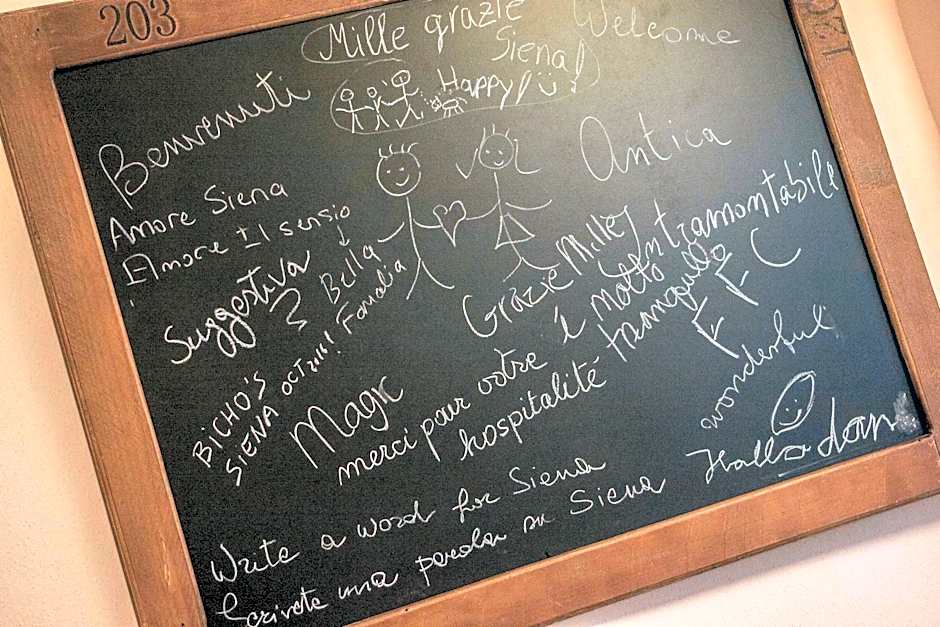 203
Mille grazie
Siena!
Welcome
Happy!
Benvenuti
Antica
Amore Siena
Amore Il sensio
Bella
Famalia
Suggestiva
Intramontabile
Grazie Mille
é molto tranquillo
F F C
BICHO'S
SIENA OCT 2016!
Magic
merci pour votre
hospitalité
wonderful!
Hallo dan
Write a word for Siena
Scrivete una parola su Siena